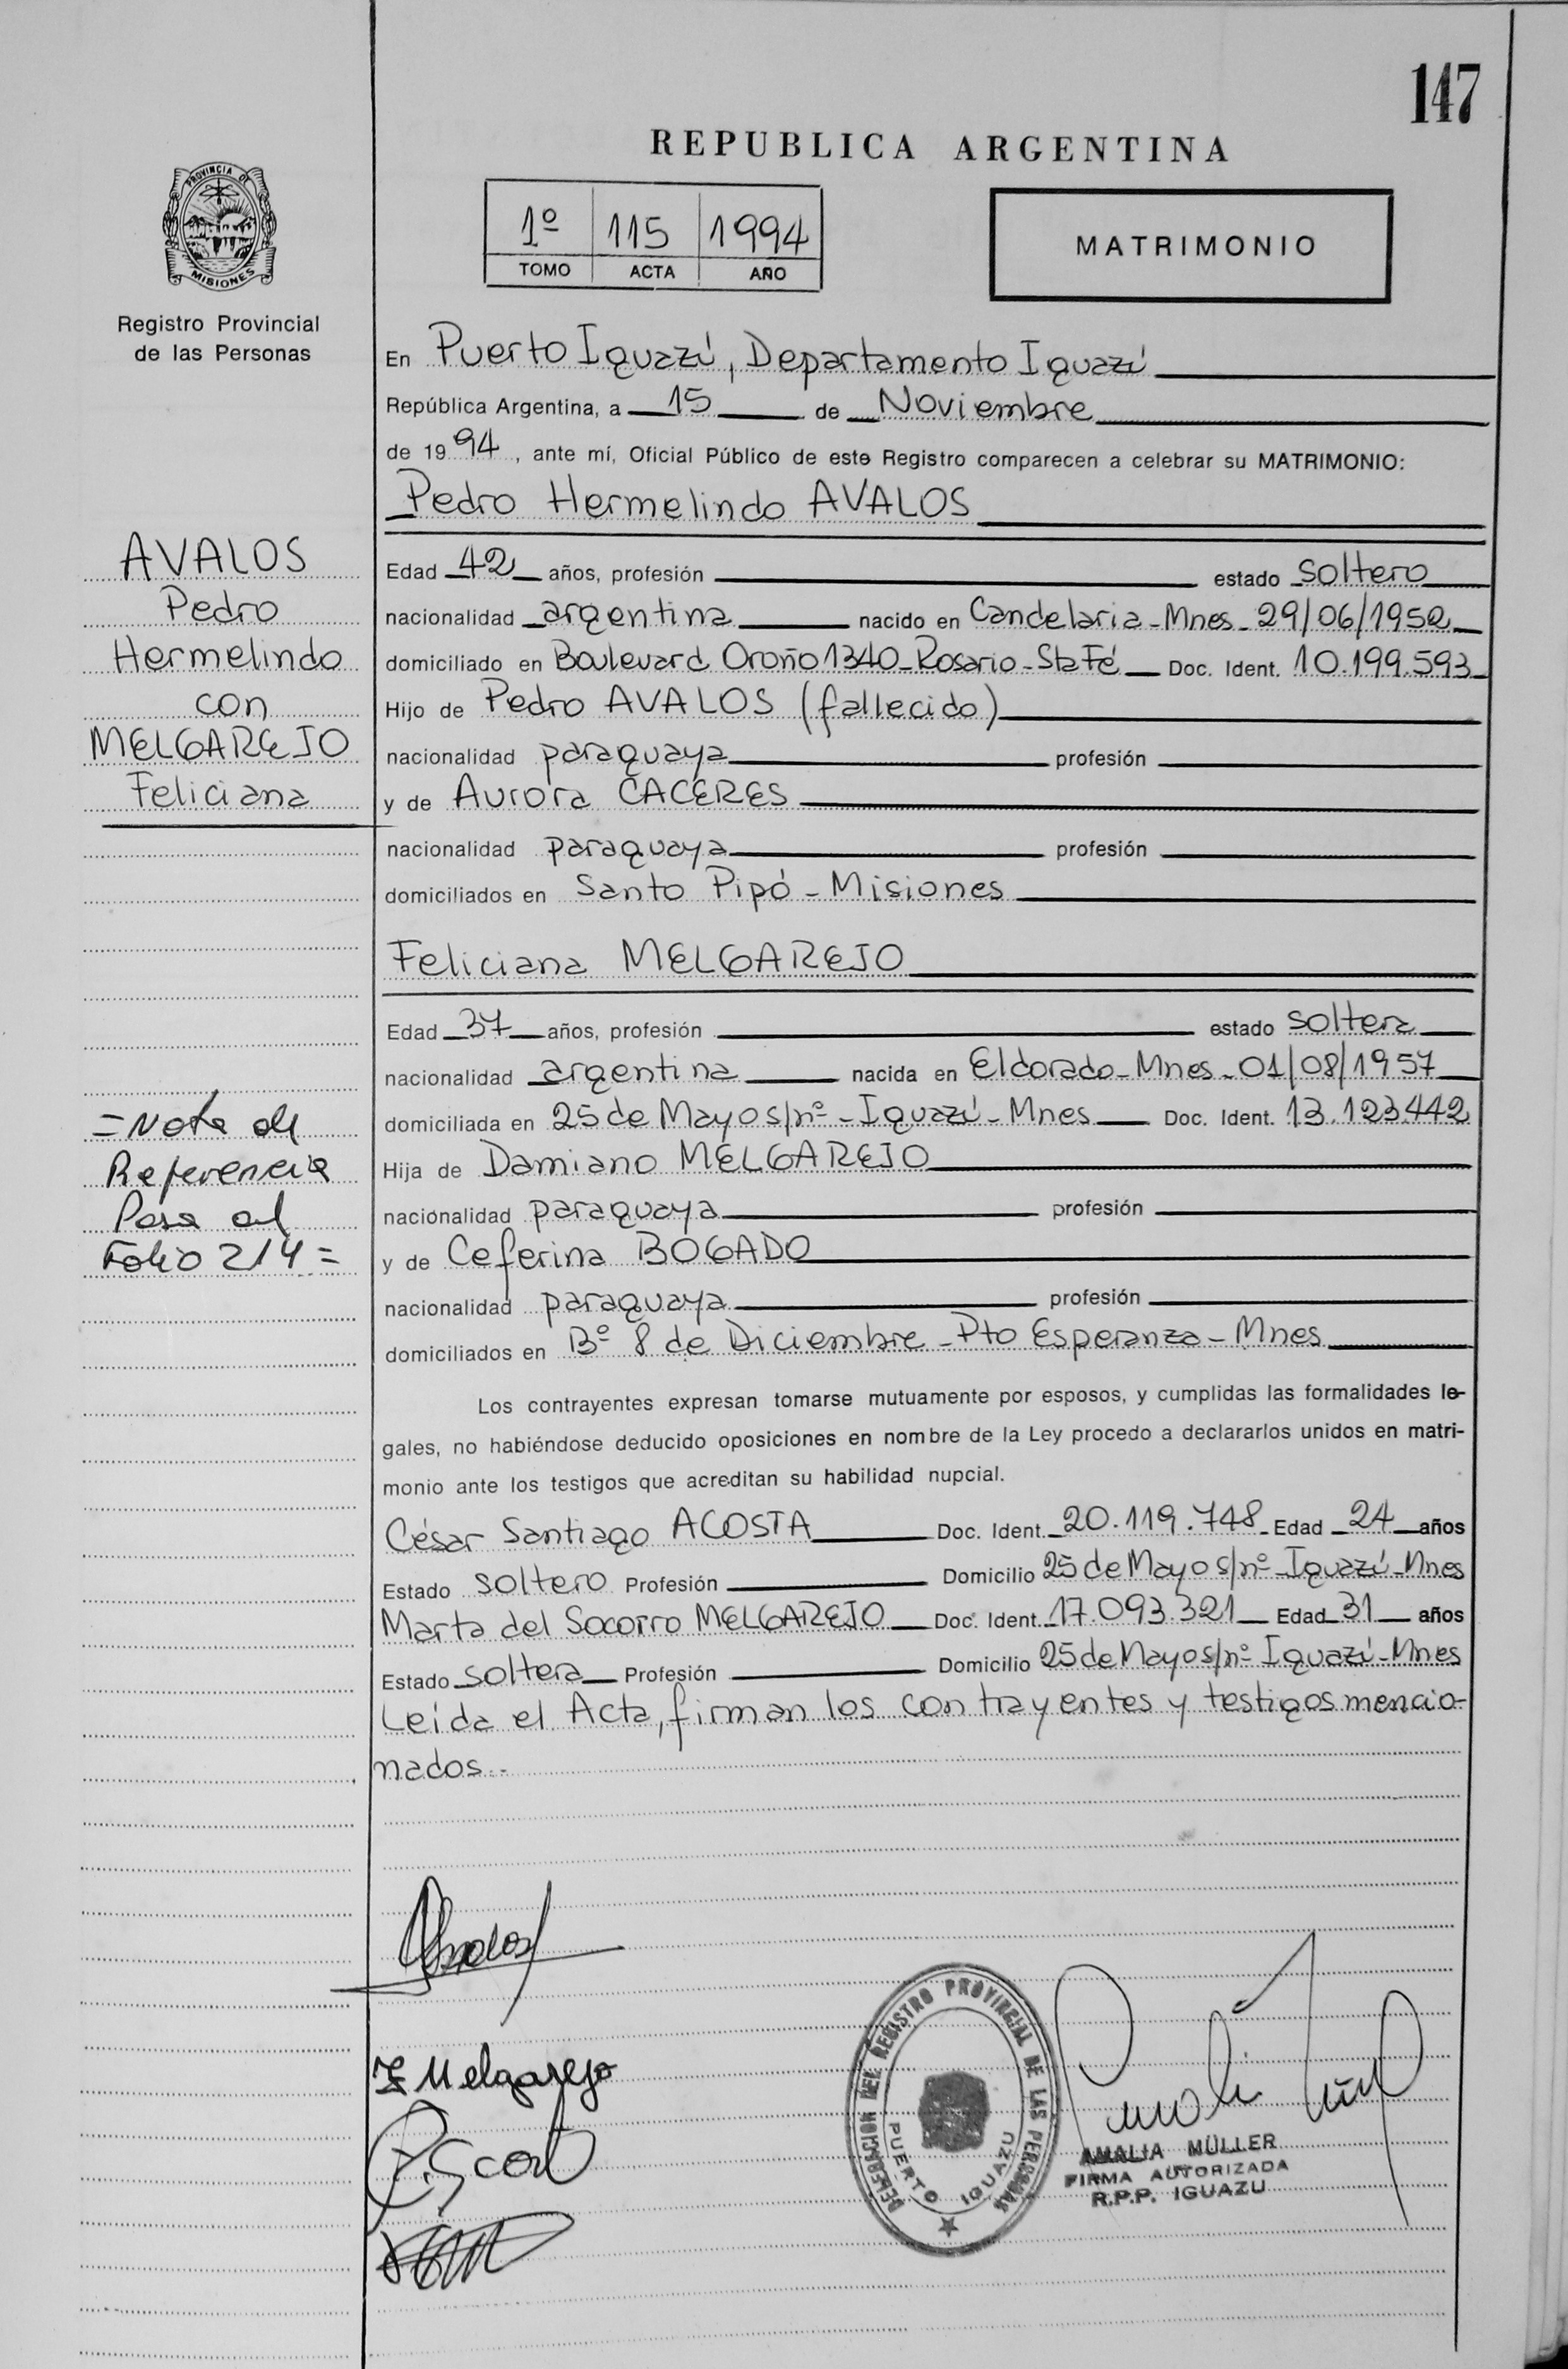 147
REPUBLICA ARGENTINA
PROVINCIA DE
MISIONES
Registro Provincial
de las Personas
1º 115 1994
TOMO ACTA AÑO
MATRIMONIO
En Puerto Iguazú, Departamento Iguazú
República Argentina, a 15 de Noviembre
de 1994, ante mí, Oficial Público de este Registro comparecen a celebrar su MATRIMONIO:
Pedro Hermelindo AVALOS
AVALOS
Pedro
Hermelindo
con
MELGAREJO
Feliciana
Edad 42 años, profesión estado soltero
nacionalidad argentina nacido en Candelaria-Mnes-29/06/1952
domiciliado en Boulevard Oroño 1340-Rosario-Sta Fé Doc. Ident. 10.199.593
Hijo de Pedro AVALOS (fallecido)
nacionalidad paraguaya profesión
y de Aurora CACERES
nacionalidad paraguaya profesión
domiciliados en Santo Pipó-Misiones
Feliciana MELGAREJO
Edad 37 años, profesión estado soltera
nacionalidad argentina nacida en Eldorado-Mnes-01/08/1957
domiciliada en 25 de Mayo s/nº-Iguazú-Mnes Doc. Ident. 13.123.442
Hija de Damiano MELGAREJO
nacionalidad paraguaya profesión
y de Ceferina BOGADO
nacionalidad paraguaya profesión
domiciliados en Bº 8 de Diciembre-Pto Esperanza-Mnes
=Nota de
Referencia
Pasa al
Folio 214=
Los contrayentes expresan tomarse mutuamente por esposos, y cumplidas las formalidades le-
gales, no habiéndose deducido oposiciones en nombre de la Ley procedo a declararlos unidos en matri-
monio ante los testigos que acreditan su habilidad nupcial.
César Santiago ACOSTA Doc. Ident. 20.119.748 Edad 24 años
Estado soltero Profesión Domicilio 25 de Mayo s/nº-Iguazú-Mnes
Marta del Socorro MELGAREJO Doc. Ident. 17.093.321 Edad 31 años
Estado soltera Profesión Domicilio 25 de Mayo s/nº Iguazú-Mnes
Leída el Acta, firman los contrayentes y testigos mencio-
nados.-
F Melgarejo
DELEGACION DEL REGISTRO PROVINCIAL DE LAS PERSONAS
PUERTO IGUAZU
AMALIA MÜLLER
FIRMA AUTORIZADA
R.P.P. IGUAZU